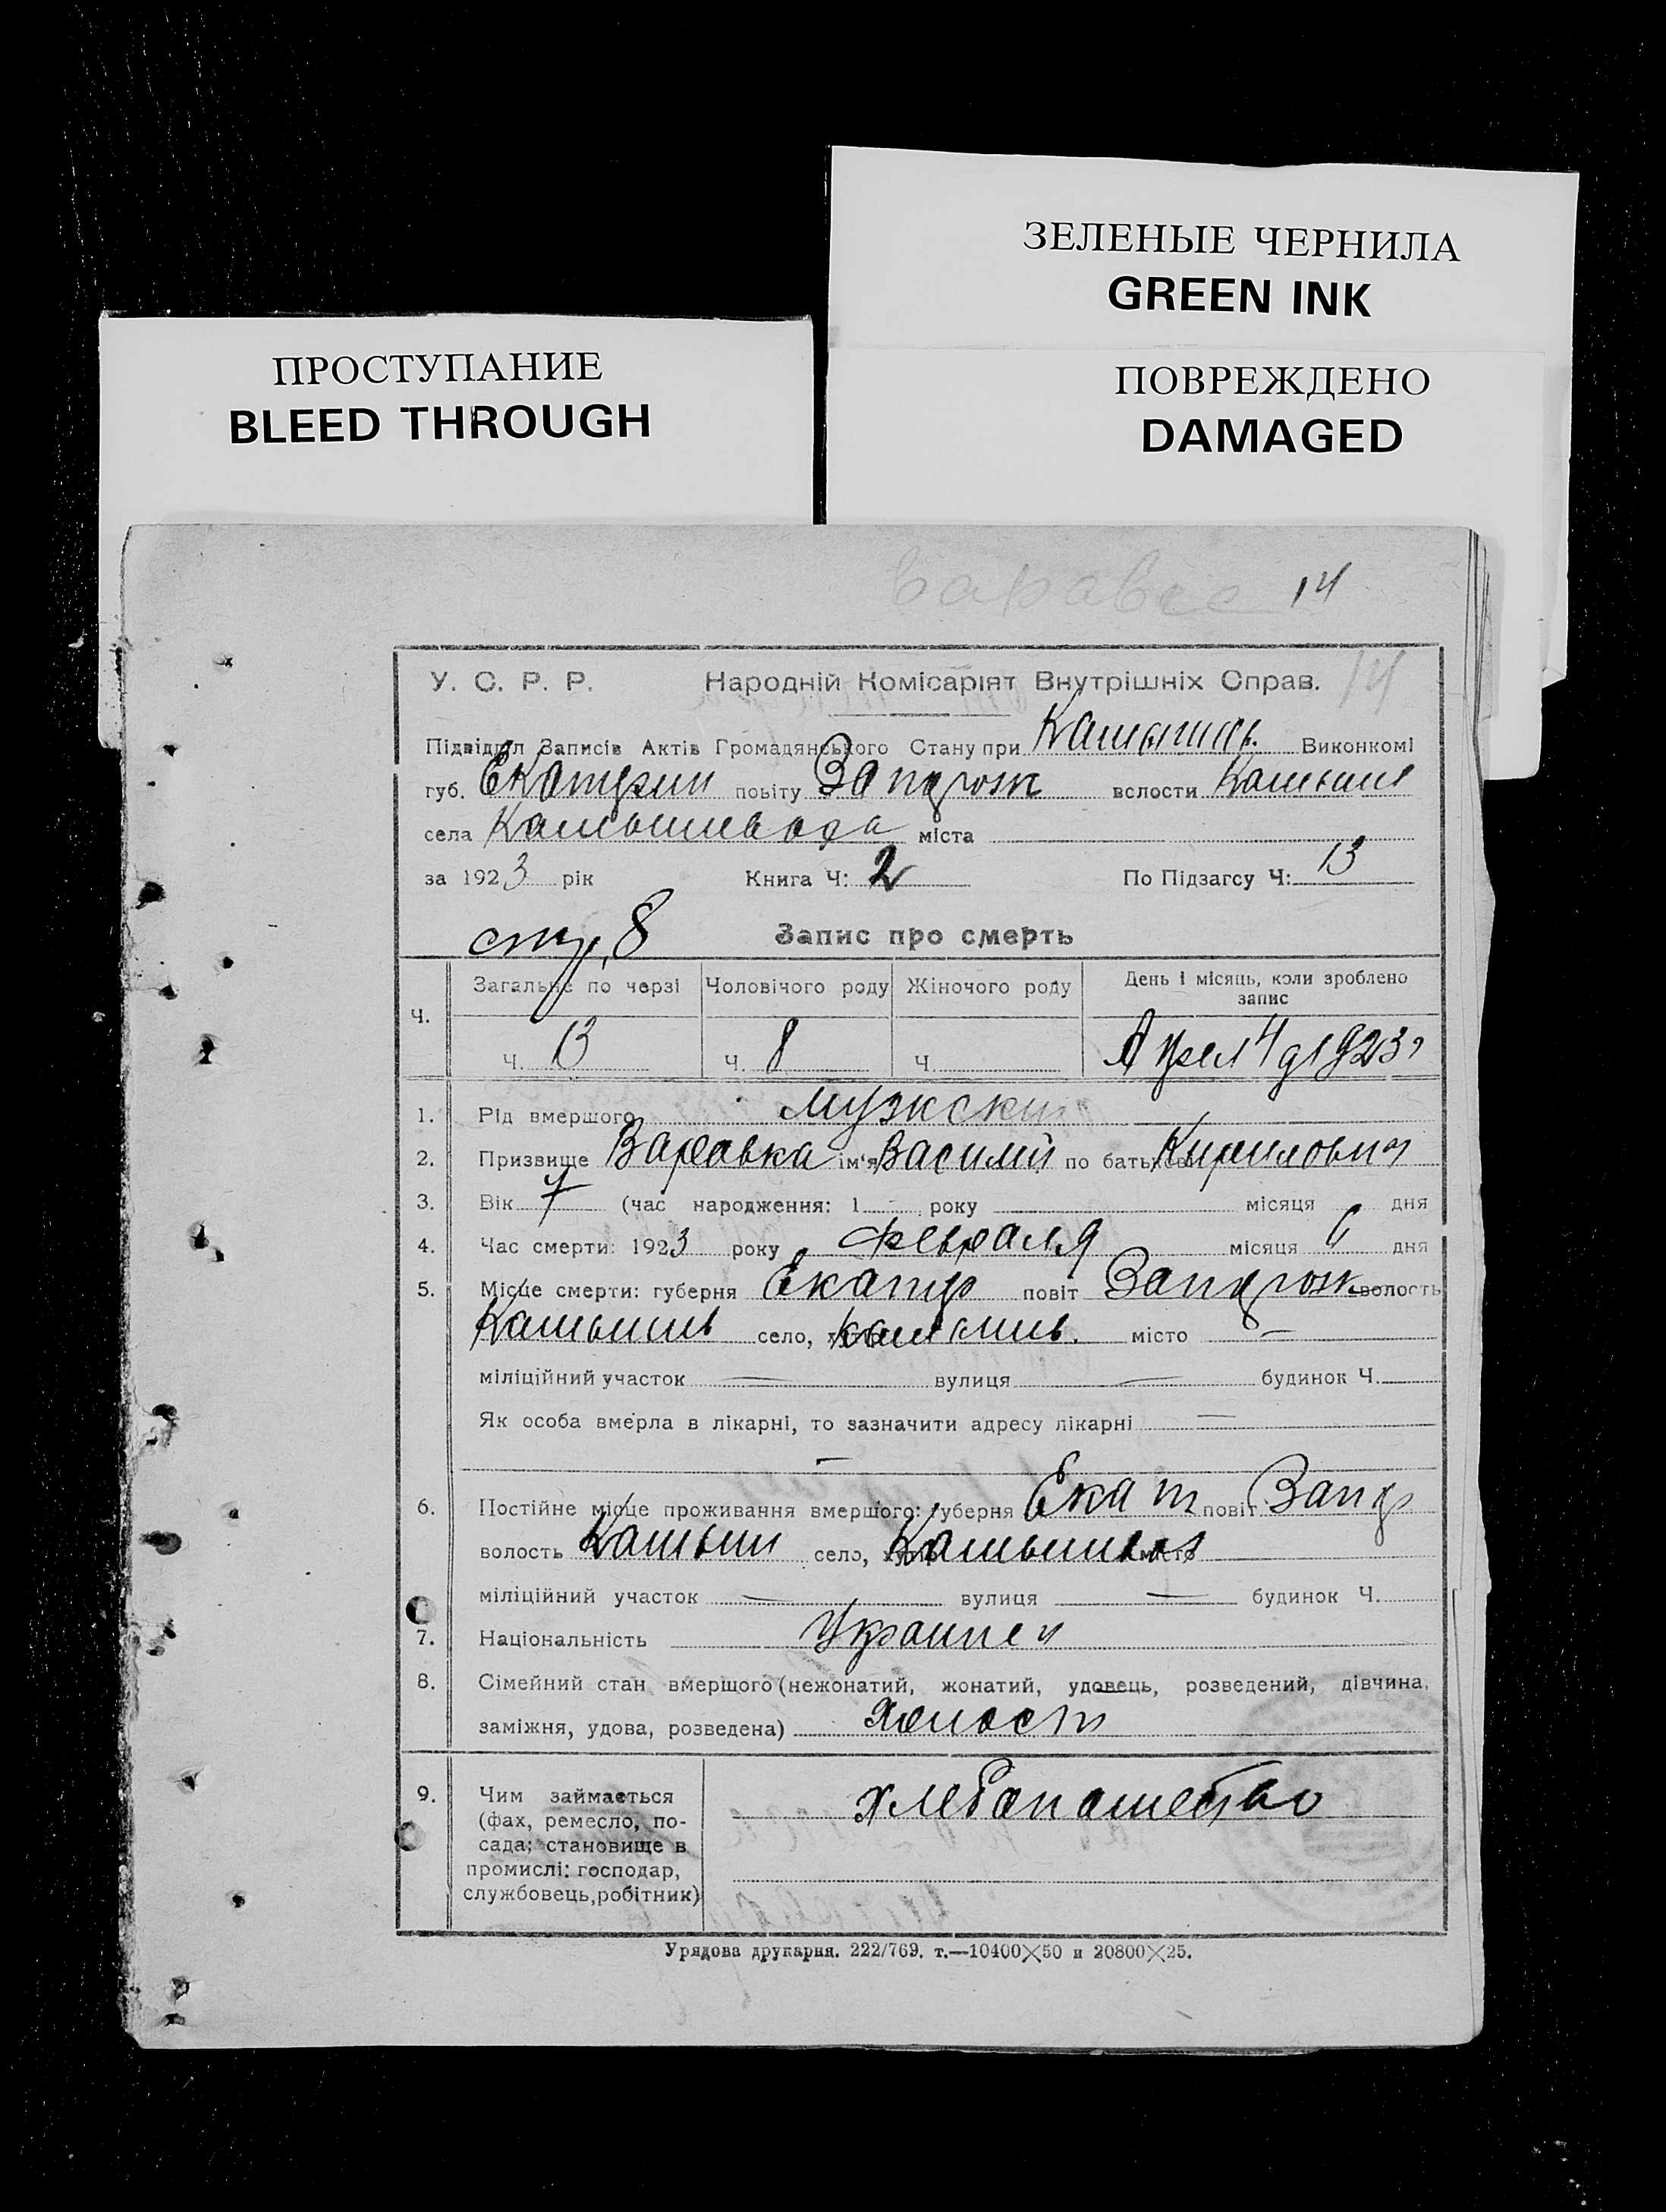 ЗЕЛЕНЫЕ ЧЕРНИЛА
GREEN INK
ПОВРЕЖДЕНО
DAMAGED
ПРОСТУПАНИЕ
BLEED THROUGH
14
У. С. Р. Р. Народній Комісаріят Внутрішніх Справ. 14
Підвідділ Записів Актів Громадянського Стану при Виконкомі
губ. Екатерин повіту Запорож волости Камыше
села Камышеваха міста
за 1923 рік Книга Ч: 2 По Підзагсу Ч: 13
стр. 8 Запис про смерть
Ч. Загальне по черзі Чоловічого роду Жіночого роду День і місяць, коли зроблено запис
Ч. 13 Ч. 8 Ч. Апрел 4 д 1923 г
1. Рід вмершого мужский
2. Призвище Варавка ім'я Василий по батькові Кирилович
3. Вік 7 (час народження: 1 року місяця дня
4. Час смерти: 1923 року Февраля місяця дня
5. Місце смерти: губерня Екатер повіт Запорож волость
Камышев село, Камышев. місто —
міліційний участок — вулиця — будинок Ч.
Як особа вмерла в лікарні, то зазначити адресу лікарні —
—
6. Постійне місце проживання вмершого: губерня Екат повіт Запор
волость Камыш село, місто
міліційний участок — вулиця — будинок Ч.
7. Національність Украинец
8. Сімейний стан вмершого (нежонатий, жонатий, удовець, розведений, дівчина,
заміжня, удова, розведена) Холост
9. Чим займається хлебопашество
(фах, ремесло, по-
сада; становище в
промислі: господар,
службовець, робітник)
Урядова друкарня. 222/769. т.—10400×50 и 20800×25.